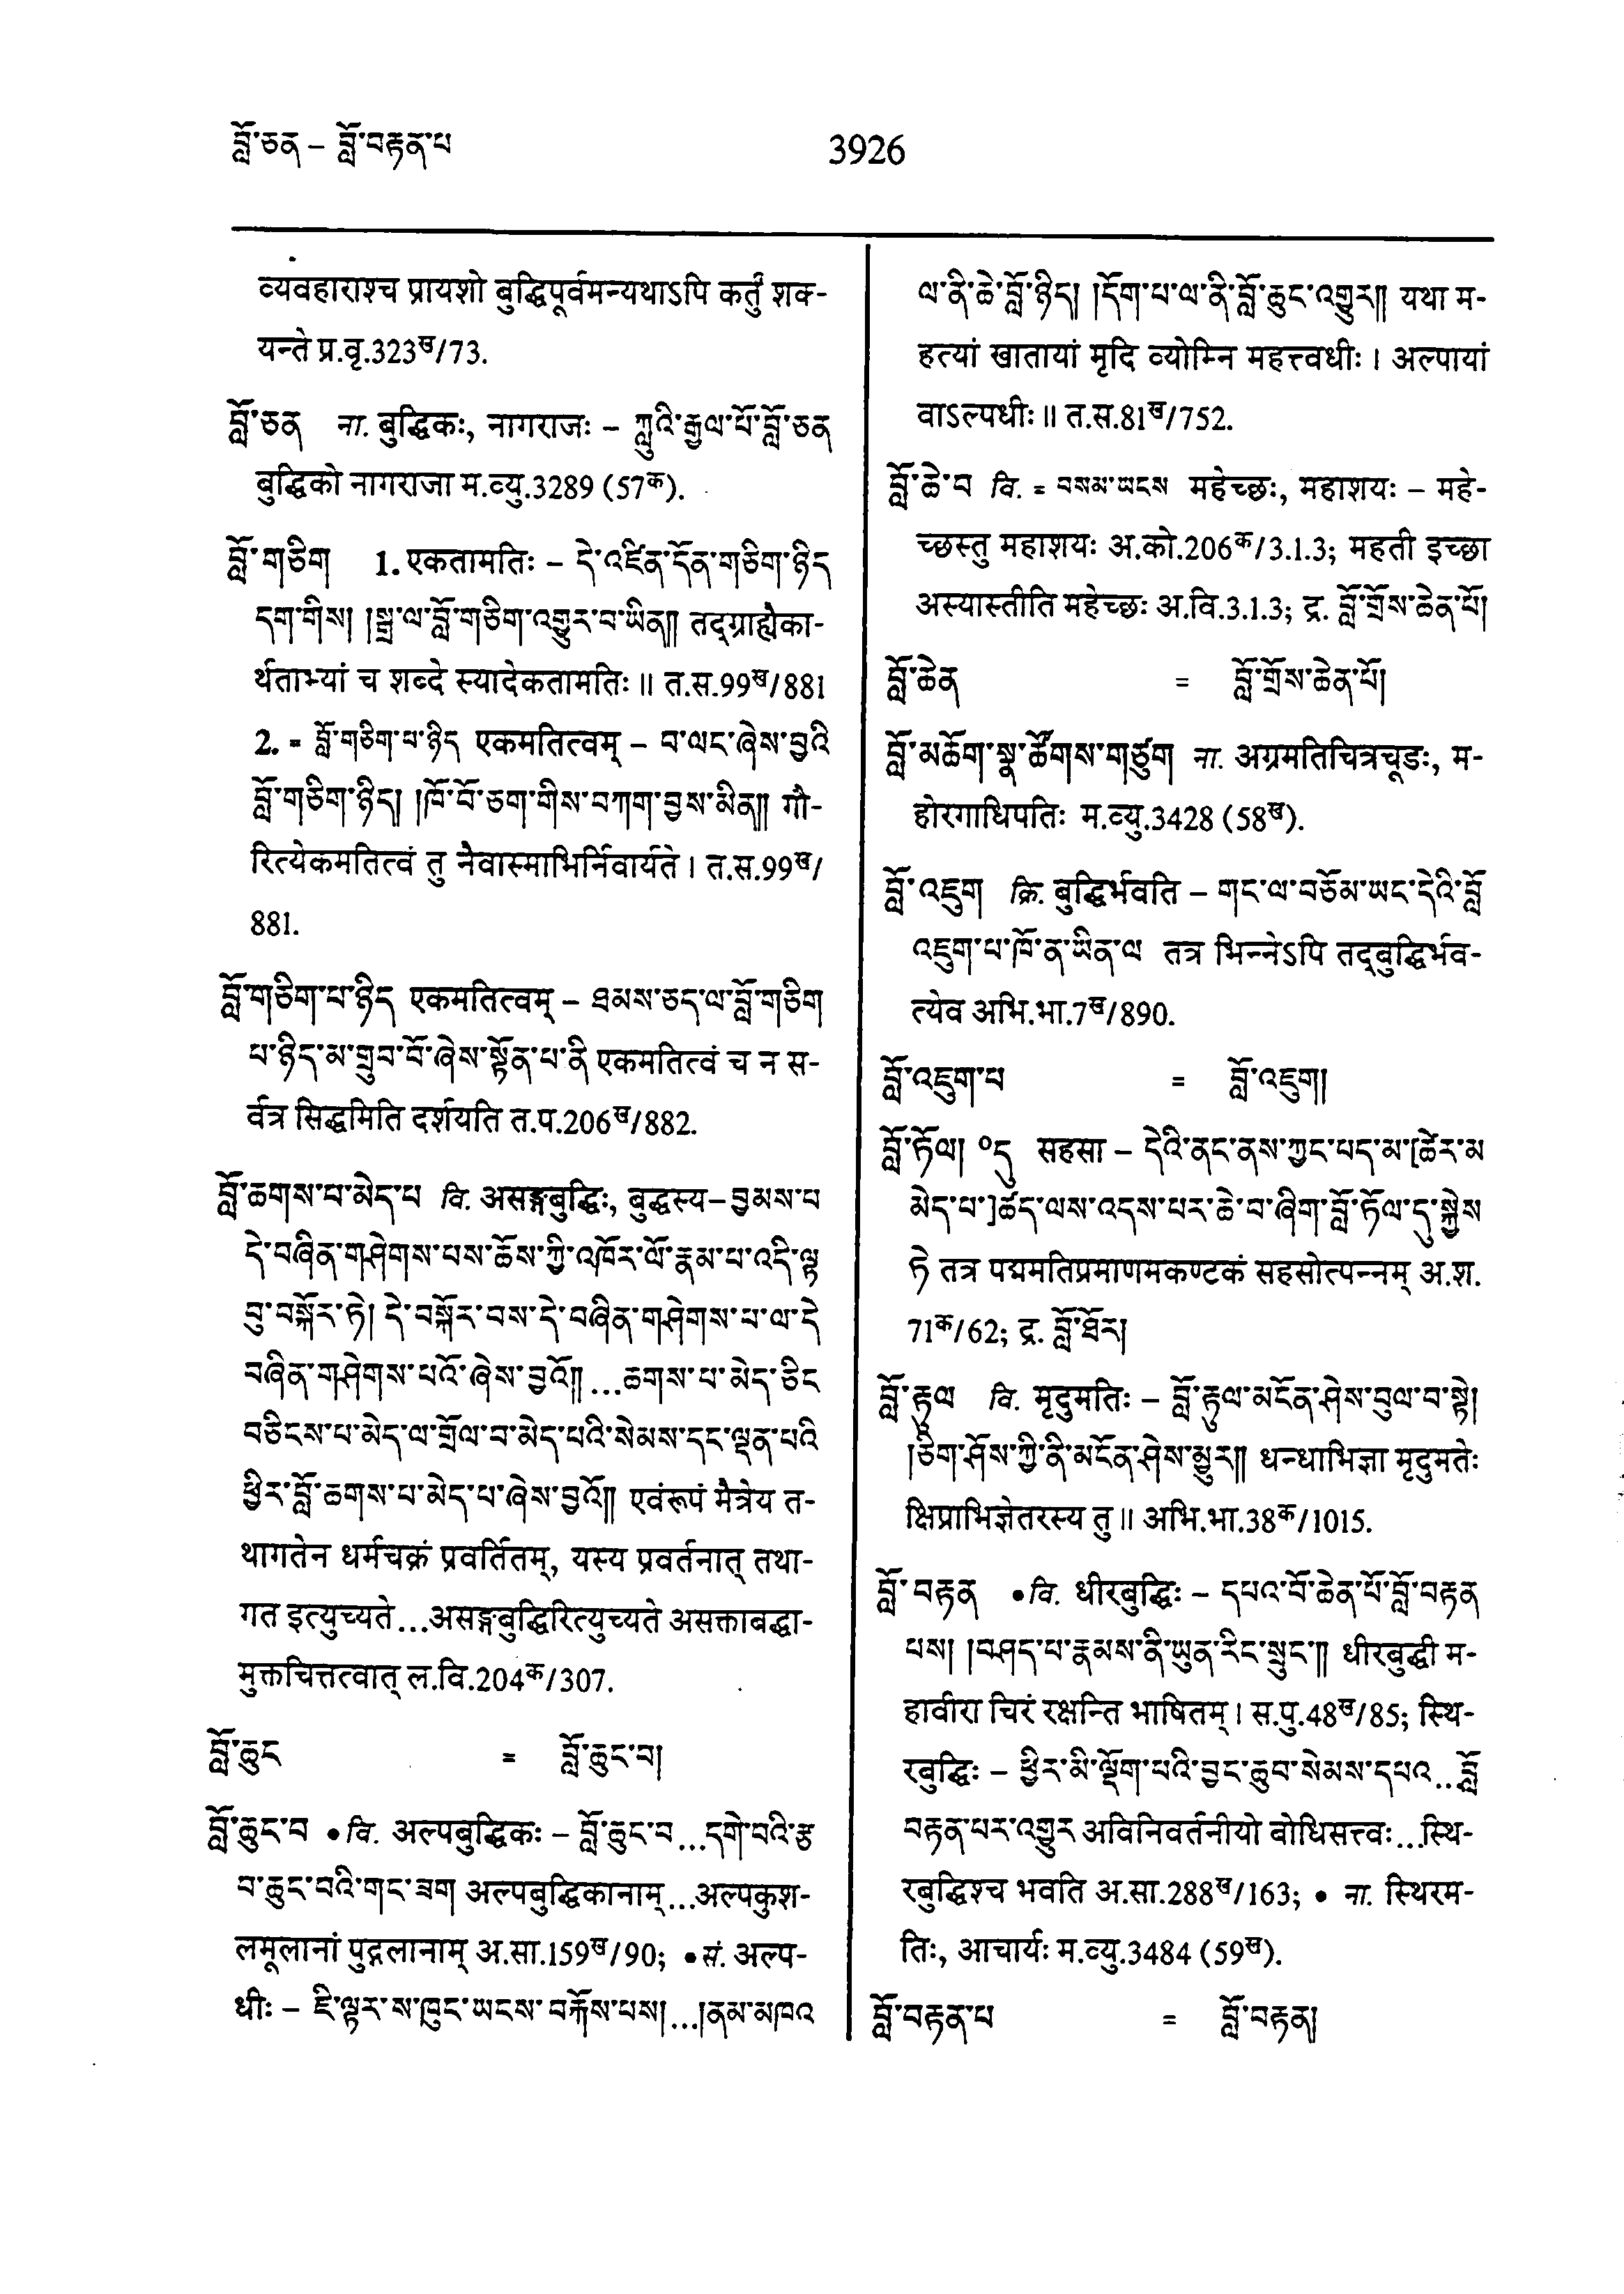 བློ་ཅན – བློ་བརྟན་པ
3926
व्यवहाराश्च प्रायशो बुद्धिपूर्वमन्यथाऽपि कर्तुं शक-
यन्ते प्र.वृ.323ख/73.
བློ་ཅན ना. बुद्धिकः, नागराजः – ཀླུའི་རྒྱལ་པོ་བློ་ཅན
बुद्धिको नागराजा म.व्यु.3289 (57क).
བློ་གཅིག 1. एकतामतिः – དེ་འཛིན་དོན་གཅིག་ཉིད
དག་གིས། །སྒྲ་ལ་བློ་གཅིག་འགྱུར་བ་ཡིན།། तद्ग्राह्यैका-
र्थताभ्यां च शब्दे स्यादेकतामतिः ॥ त.स.99ख/881
2. = བློ་གཅིག་པ་ཉིད एकमतित्वम् – བ་ལང་ཞེས་བྱའི
བློ་གཅིག་ཉིད། །ཁོ་བོ་ཅག་གིས་བཀག་བྱས་མིན།། गौ-
रित्येकमतित्वं तु नैवास्माभिर्निवार्यते । त.स.99ख/
881.
བློ་གཅིག་པ་ཉིད एकमतित्वम् – ཐམས་ཅད་ལ་བློ་གཅིག
པ་ཉིད་མ་གྲུབ་བོ་ཞེས་སྟོན་པ་ནི एकमतित्वं च न स-
र्वत्र सिद्धमिति दर्शयति त.प.206ख/882.
བློ་ཆགས་པ་མེད་པ वि. असङ्गबुद्धिः, बुद्धस्य – བྱམས་པ
དེ་བཞིན་གཤེགས་པས་ཆོས་ཀྱི་འཁོར་ལོ་རྣམ་པ་འདི་ལྟ
བུ་བསྐོར་ཏེ། དེ་བསྐོར་བས་དེ་བཞིན་གཤེགས་པ་ལ་དེ
བཞིན་གཤེགས་པའོ་ཞེས་བྱའོ།། ...ཆགས་པ་མེད་ཅིང
བཅིངས་པ་མེད་ལ་གྲོལ་བ་མེད་པའི་སེམས་དང་ལྡན་པའི
ཕྱིར་བློ་ཆགས་པ་མེད་པ་ཞེས་བྱའོ།། एवंरूपं मैत्रेय त-
थागतेन धर्मचक्रं प्रवर्तितम्, यस्य प्रवर्तनात् तथा-
गत इत्युच्यते...असङ्गबुद्धिरित्युच्यते असक्ताबद्धा-
मुक्तचित्तत्वात् ल.वि.204क/307.
བློ་ཆུང = བློ་ཆུང་བ།
བློ་ཆུང་བ • वि. अल्पबुद्धिकः – བློ་ཆུང་བ...དགེ་བའི་རྩ
བ་ཆུང་བའི་གང་ཟག अल्पबुद्धिकानाम्...अल्पकुश-
लमूलानां पुद्गलानाम् अ.सा.159ख/90; • सं. अल्प-
धीः – ཇི་ལྟར་ས་ཁུང་ཡངས་བརྐོས་པས། ...།ནམ་མཁའ
ལ་ནི་ཆེ་བློ་ཉིད། །དོག་པ་ལ་ནི་བློ་ཆུང་འགྱུར།། यथा म-
हत्यां खातायां मृदि व्योम्नि महत्त्वधीः । अल्पायां
वाऽल्पधीः ॥ त.स.81ख/752.
བློ་ཆེ་བ वि. = བསམ་ཡངས महेच्छः, महाशयः – महे-
च्छस्तु महाशयः अ.को.206क/3.1.3; महती इच्छा
अस्यास्तीति महेच्छः अ.वि.3.1.3; द्र. བློ་གྲོས་ཆེན་པོ།
བློ་ཆེན = བློ་གྲོས་ཆེན་པོ།
བློ་མཆོག་སྣ་ཚོགས་གཙུག ना. अग्रमतिचित्रचूडः, म-
होरगाधिपतिः म.व्यु.3428 (58ख).
བློ་འཇུག क्रि. बुद्धिर्भवति – གང་ལ་བཅོམ་ཡང་དེའི་བློ
འཇུག་པ་ཁོ་ན་ཡིན་ལ तत्र भिन्नेऽपि तद्बुद्धिर्भव-
त्येव अभि.भा.7ख/890.
བློ་འཇུག་པ = བློ་འཇུག།
བློ་ཏོལ། ०དུ सहसा – དེའི་ནང་ནས་ཀྱང་པད་མ་[ཚེར་མ
མེད་པ་]ཚད་ལས་འདས་པར་ཆེ་བ་ཞིག་བློ་ཏོལ་དུ་སྐྱེས
ཏེ तत्र पद्ममतिप्रमाणमकण्टकं सहसोत्पन्नम् अ.श.
71क/62; द्र. བློ་ཐོར།
བློ་རྟུལ वि. मृदुमतिः – བློ་རྟུལ་མངོན་ཤེས་བུལ་བ་སྟེ།
།ཅིག་ཤོས་ཀྱི་ནི་མངོན་ཤེས་མྱུར།། धन्धाभिज्ञा मृदुमतेः
क्षिप्राभिज्ञेतरस्य तु ॥ अभि.भा.38क/1015.
བློ་བརྟན • वि. धीरबुद्धिः – དཔའ་བོ་ཆེན་པོ་བློ་བརྟན
པས། །བཤད་པ་རྣམས་ནི་ཡུན་རིང་སྲུང་།། धीरबुद्धी म-
हावीरा चिरं रक्षन्ति भाषितम् । स.पु.48ख/85; स्थि-
रबुद्धिः – ཕྱིར་མི་ལྡོག་པའི་བྱང་ཆུབ་སེམས་དཔའ...བློ
བརྟན་པར་འགྱུར अविनिवर्तनीयो बोधिसत्त्वः...स्थि-
रबुद्धिश्च भवति अ.सा.288ख/163; • ना. स्थिरम-
तिः, आचार्यः म.व्यु.3484 (59ख).
བློ་བརྟན་པ = བློ་བརྟན།